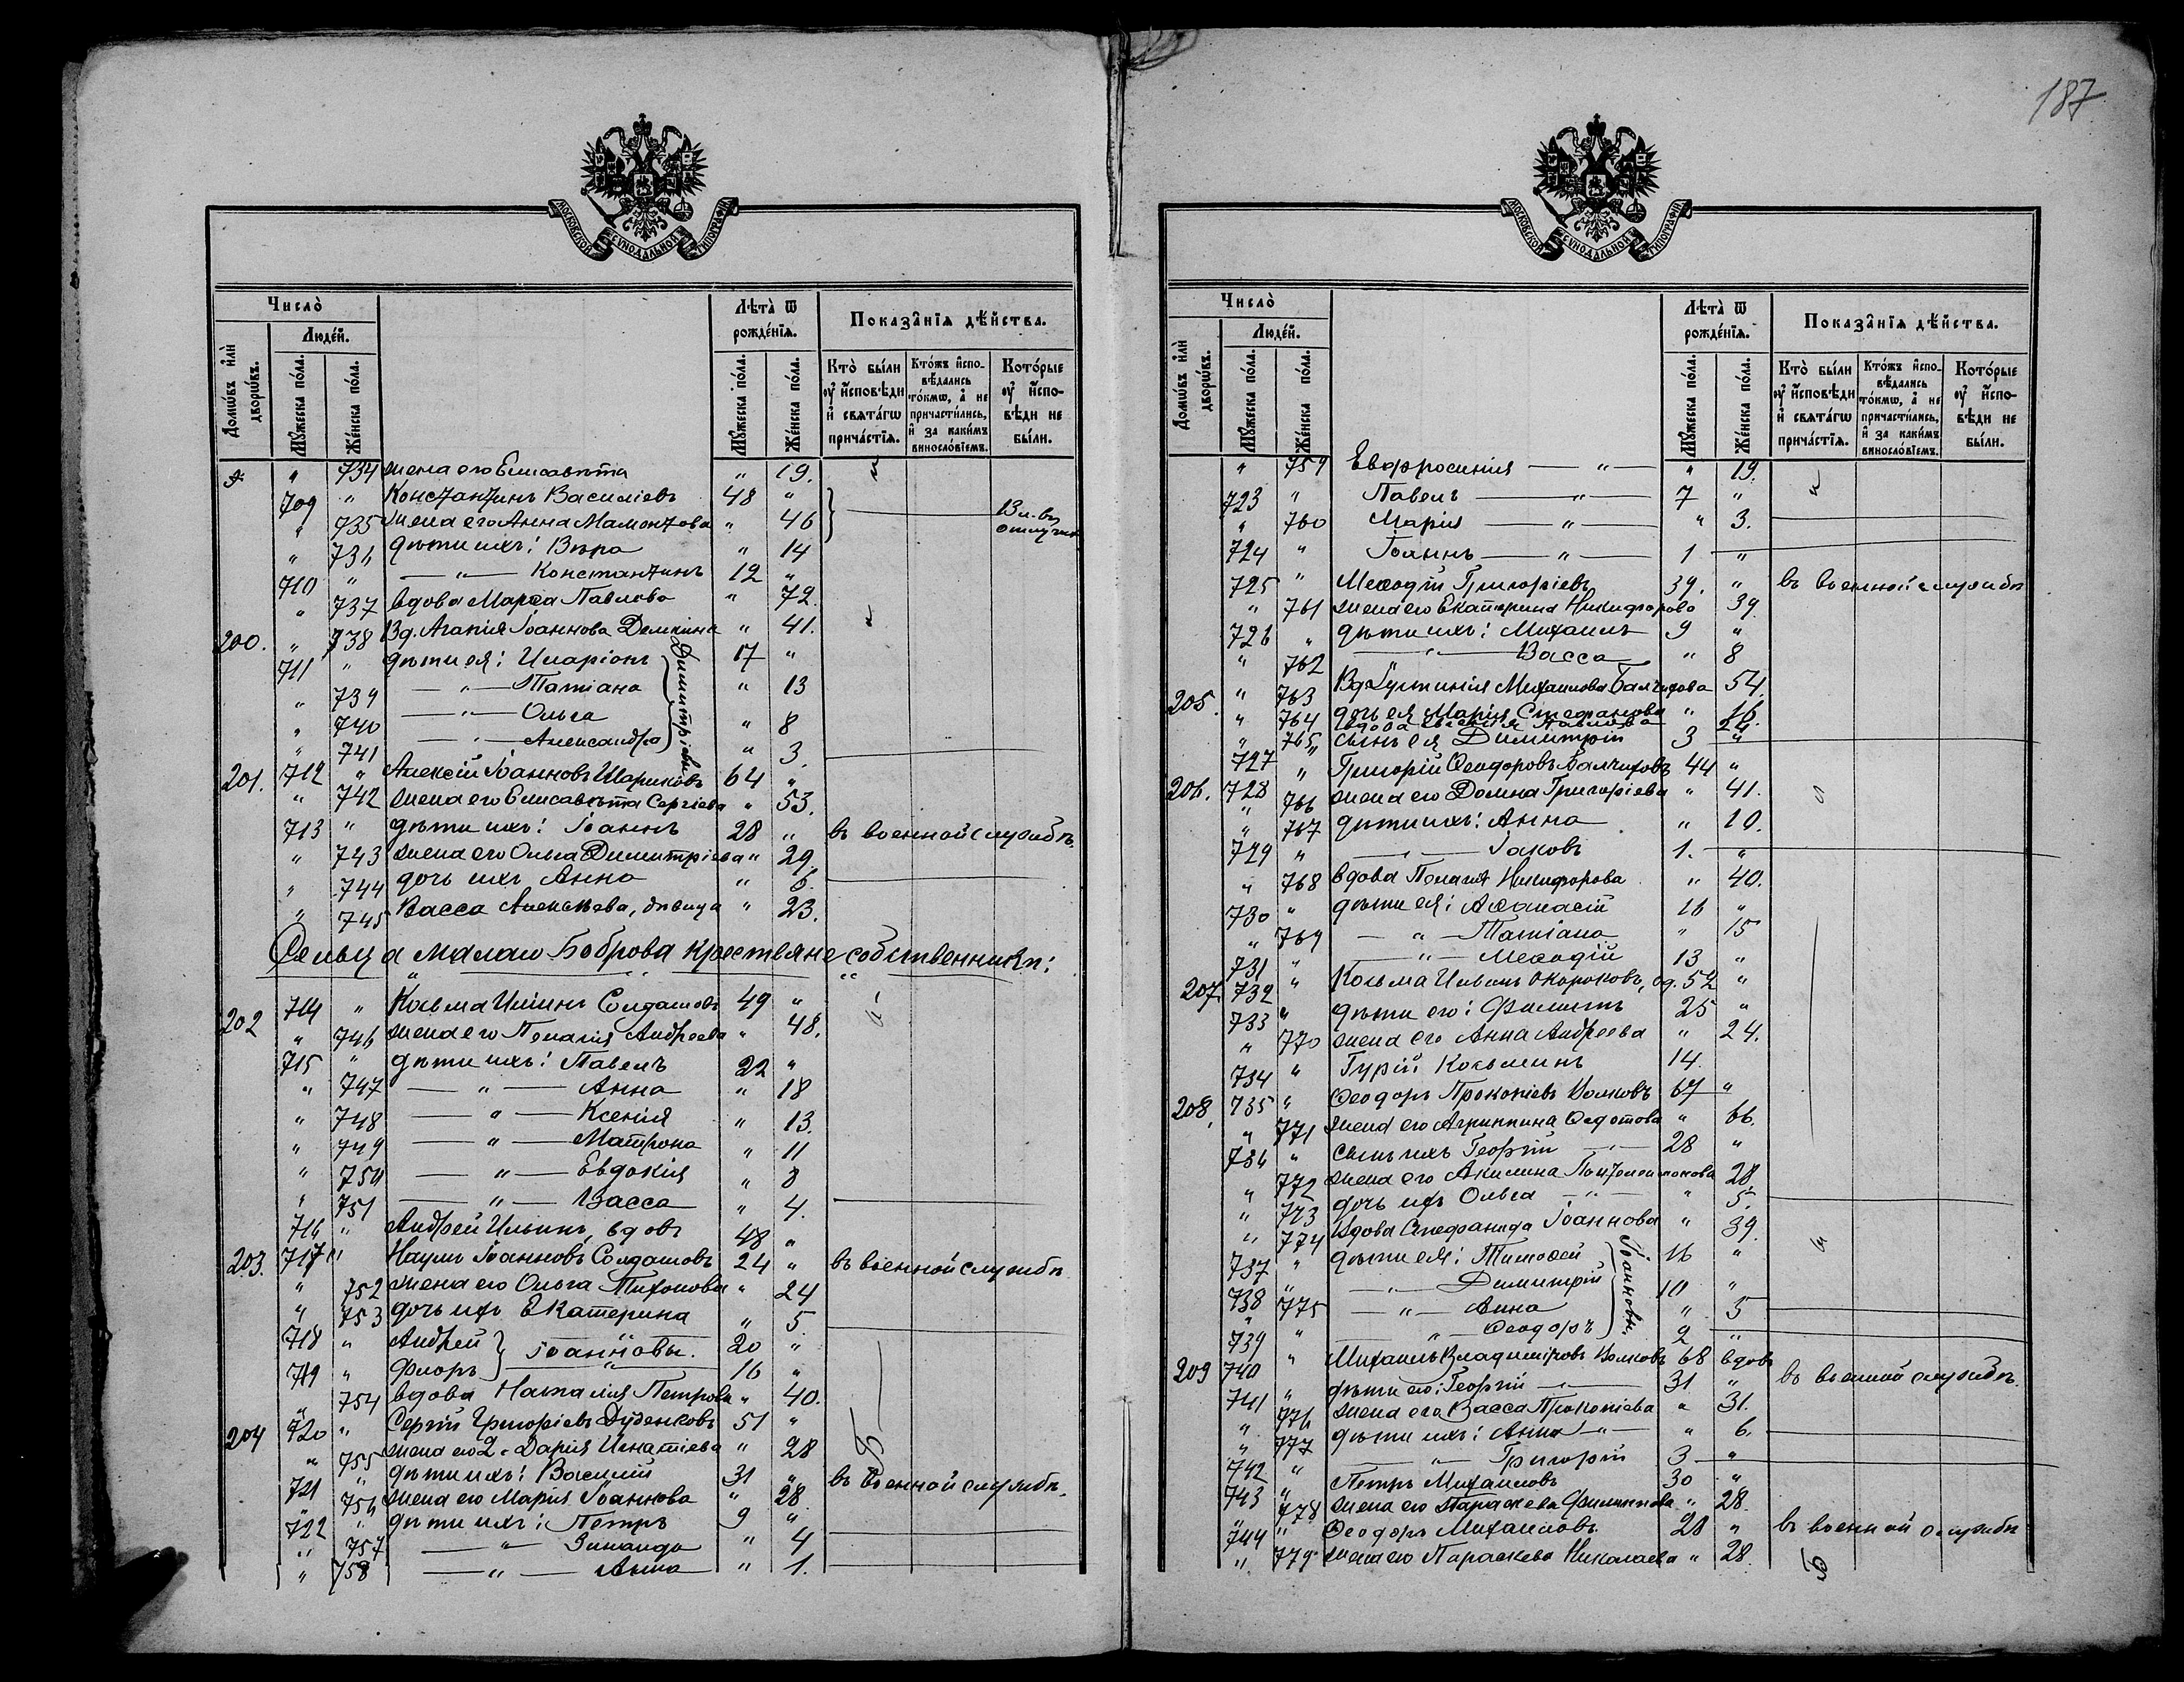 187
МОСКОВСКОЙ СѴНОДАЛЬНОЙ ТИПОГРАФІИ
Число̀
Домѡ́въ и҆лѝ дворѡ́въ.
Люде́й.
Мꙋ́жеска по́ла.
Же́нска по́ла.
Лѣ̀та̀ ѿ рожде́нїѧ.
Мꙋ́жеска по́ла.
Же́нска по́ла.
Показа̑нїѧ дѣ́йства.
Кто̀ бы́ли ᲂу҆ и҆́сповѣди и҆ свѧта́гѡ прича́стїѧ.
Кто́жъ и҆спо-вѣ́дались то́кмѡ, а҆ не причасти́лись, и҆ за каки́мъ винослѡ́вїемъ.
Кото́рые ᲂу҆ и҆́спо-вѣди не бы́ли.
" 734 жена его Елисавѣта " 19.
709 " Константинъ Василіевъ 48 "
" 735 жена его Анна Мамонтова " 46 Вл. въ отлучкѣ
" 736 дѣти ихъ: Вѣра " 14
710 " — " — Константинъ 12 "
" 737 вдова Марѳа Павлова " 72.
200. " 738 Вд. Агапія Іоаннова Демкина " 41.
711 " дѣти ея: Иларіонъ 17 "
" 739 — " — Татіана " 13
" 740 — " — Ольга " 8
" 741 — " — Александра " 3.
Димитріевы
201. 712 " Алексій Іоанновъ Шариковъ 64 "
" 742 жена его Елисавѣта Сергіева " 53.
713 " дѣти ихъ: Іоаннъ 28 " въ военной службѣ.
" 743 жена его Ольга Димитріева " 29.
" 744 дочь ихъ Анна " 6.
" 745 Васса Алексѣева, дѣвица " 23.
Сельца Малаго Боброва крестьяне собственники:
202 714 " Косьма Ильинъ Солдатовъ 49 "
" 746 жена его Пелагія Андреева " 48.
715 " дѣти ихъ: Павелъ 22 "
" 747 — " — Анна " 18
" 748 — " — Ксенія " 13.
" 749 — " — Матрона " 11
" 750 — " — Евдокія " 8
" 751 — " — Васса " 4.
716 " Андрей Ильинъ, вдовъ 48 "
203. 717 " Наумъ Іоанновъ Солдатовъ 24 " въ военной службѣ
" 752 жена его Ольга Тихонова " 24
" 753 дочь ихъ Екатерина " 5.
718 " Андрей } Іоанновы. 20 "
719 " Флоръ } — " — 16 "
" 754 вдова Наталія Петрова " 40.
204 720 " Сергій Григоріевъ Дуденковъ 51 "
" 755 жена его 2. Дарія Игнатіева " 28
721 " дѣти ихъ: Василій 31 " въ военной службѣ.
" 756 жена его Марія Іоаннова " 28.
722 " дѣти ихъ: Петръ 9 "
" 757 — " — Зинаида " 4
" 758 — " — Анна " 1.
МОСКОВСКОЙ СѴНОДАЛЬНОЙ ТИПОГРАФІИ
Число̀
Домѡ́въ и҆лѝ дворѡ́въ.
Люде́й.
Мꙋ́жеска по́ла.
Же́нска по́ла.
Лѣ̀та̀ ѿ рожде́нїѧ.
Мꙋ́жеска по́ла.
Же́нска по́ла.
Показа̑нїѧ дѣ́йства.
Кто̀ бы́ли ᲂу҆ и҆́сповѣди и҆ свѧта́гѡ прича́стїѧ.
Кто́жъ и҆спо-вѣ́дались то́кмѡ, а҆ не причасти́лись, и҆ за каки́мъ винослѡ́вїемъ.
Кото́рые ᲂу҆ и҆́спо-вѣди не бы́ли.
" 759 Евфросинія — " — " 19.
723 " Павелъ — " — 7 "
" 760 Марія — " — " 3.
724 " Іоаннъ — " — 1 "
725 " Меѳодій Григоріевъ 39. " въ военной службѣ
" 761 жена его Екатерина Никифорова 39
726 " дѣти ихъ: Михаилъ 9 "
" 762 — " — Васса " 8
205. " 763 Вд. Іустинія Михаилова Балчихова 54.
" 764 дочь ея Марія Стефанова " 16
" 765 вдова Павлова 24.
727 " сынъ ея Димитрій 3 "
206. 728 " Григорій Ѳеодоровъ Балчиховъ 44 "
" 766 жена его Домна Григоріева " 41.
" 767 дѣти ихъ: Анна " 10.
729 " — " — Іаковъ 1. "
" 768 вдова Пелагія Никифорова " 40.
730 " дѣти ея: Аѳанасій 16 "
" 769 — " — Татіана " 15
731 " — " — Меѳодій 13 "
207. 732 " Косьма Ильинъ Окороковъ, вд. 52 "
733 " дѣти его: Филиппъ 25 "
" 770 жена его Анна Андреева " 24.
734 " Гурій Косьминъ 14.
208. 735 " Ѳеодоръ Прокопіевъ Волковъ 67 "
" 771 жена его Агриппина Ѳедотова " 66.
736 " сынъ ихъ Георгій — " — 28 "
" 772 жена его Акилина Пантелеимонова 28.
" 773 дочь ихъ Ольга — " — " 5.
" 774 Вдова Стефанида Іоаннова " 39.
737 " дѣти ея: Тимоѳей 16 "
738 " — " — Димитрій 10 "
" 775 — " — Анна " 5
739 " — " — Ѳеодоръ 2 "
Іоанновы.
209 740 " Михаилъ Владиміровъ Волковъ 68 вдовъ
741 " дѣти его: Георгій — " — 31 " въ военной службѣ.
" 776 жена его Васса Прокопіева " 31.
" 777 дѣти ихъ: Анна — " — " 6.
742 " — " — Григорій 3 "
743 " Петръ Михаиловъ 30 "
" 778 жена его Параскева Филиппова " 28.
744 " Ѳеодоръ Михаиловъ 28 " въ военной службѣ
" 779 жена его Параскева Николаева " 28.